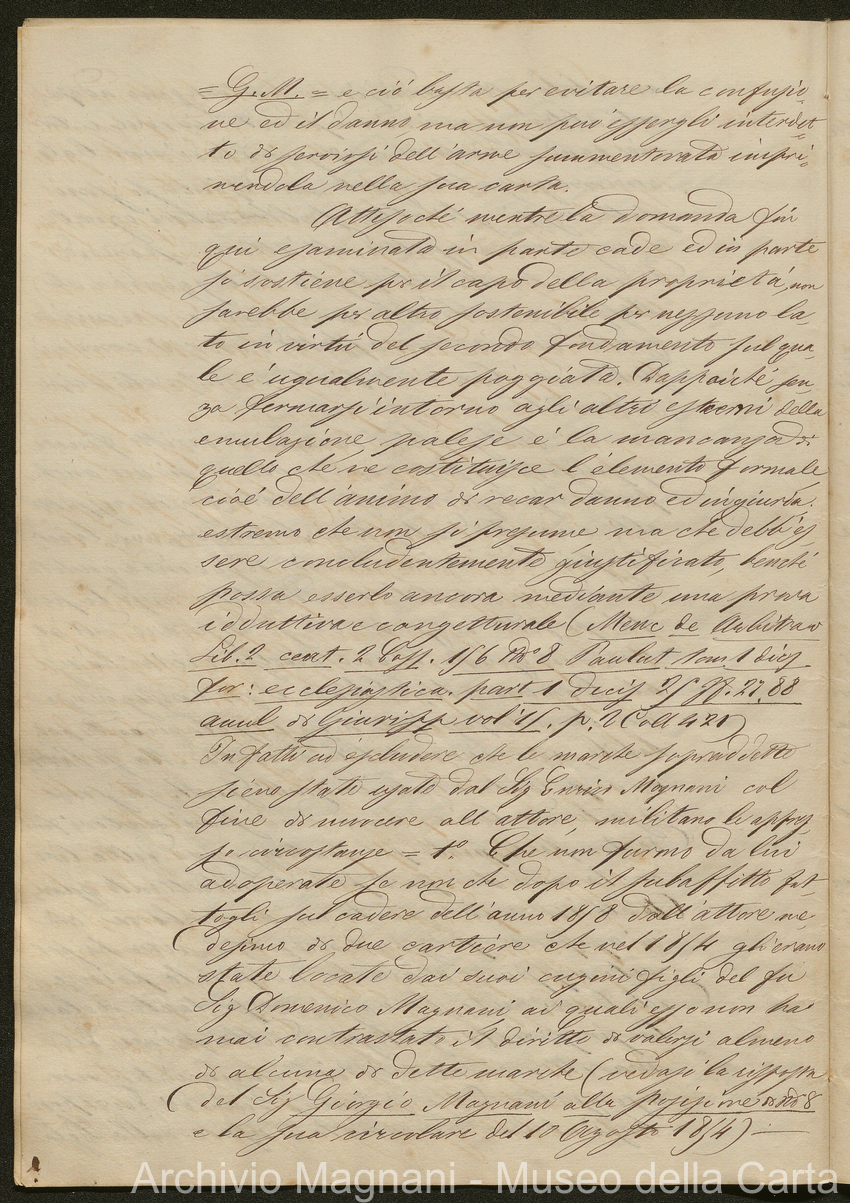 = G. M. = e ciò basta per evitare la confusio=
ne ed il danno ma non può essergli interdet=
to di servirsi dell'arme summentovata impri=
mendola nella sua carta.
Attesochè mentre la domanda fin
qui esaminata in parte cade ed in parte
si sostiene per il capo della proprietà, non
sarebbe per altro sostenibile per nessuno la=
to in virtù del secondo fondamento sul qua=
le è ugualmente poggiata. Dappoichè sen
za fermarsi intorno agli altri estremi della
emulazione, palese è la mancanza di
quello che ne costituisce l'elemento formale,
cioè dell'animo di recar danno ed ingiuria:
estremo che non si presume ma che debb'es
sere concludentemente giustificato, benchè
possa esserlo ancora mediante una prova
induttiva e congetturale (Menoc de Arbitrar
Lib. 2 cent. 2 Cass. 156 No 8 Paulut tom 1 diss
for: ecclesiastica. part 1 decis 25 27. 88
annal di Giurispr vol 15. p. 2 Coll 421)
Infatti ad escludere che le marche sopraddette
sieno state usate dal Sig Enrico Magnani col
fine di nuocere all'attore, militano le appres
so circostanze = 1º. Che non furono da lui
adoperate se non che dopo il subaffitto fat=
togli sul cadere dell'anno 1858 dall'attore me=
desimo di due cartiere che nel 1854 gli erano
state locate dai suoi cugini figli del fu
Sig Domenico Magnani ai quali esso non ha
mai contrastato il diritto di valersi almeno
di alcuna di dette marche (vedasi la risposta
del Sig Giorgio Magnani alla posizione di No 8
e la sua circolare del 10 Agosto 1854) —
Archivio Magnani - Museo della Carta